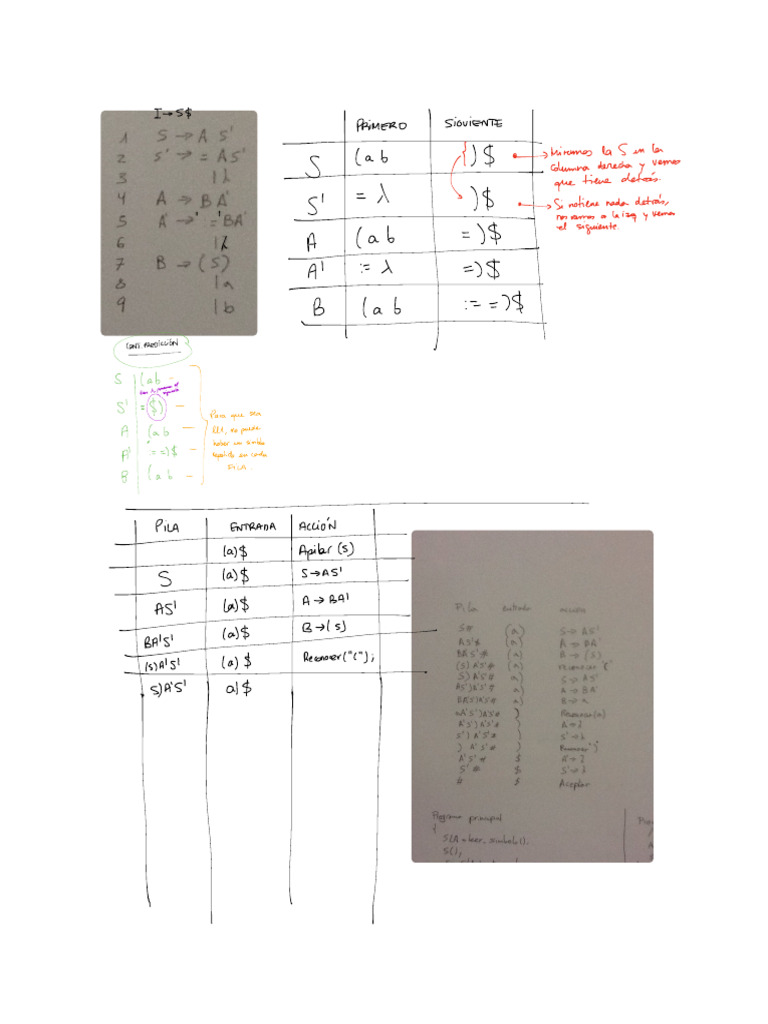 I → S$
1 S → A S'
2 S' → = A S'
3 | λ
4 A → B A'
5 A' → ' = ' B A'
6 | λ
7 B → ( S )
8 | a
9 | b
PRIMERO SIGUIENTE
S ( a b ) $
S' = λ ) $
A ( a b = ) $
A' := λ = ) $
B ( a b := = ) $
Miramos la S en la
columna derecha y vemos
que tiene detrás.
Si no tiene nada detrás,
nos vamos a la izq y vemos
el siguiente.
CONJ. PREDICCIÓN
S ( a b
S' = $ )
A ( a b
A' := = ) $
B ( a b
Para que sea
LL1, no puede
haber un símbolo
repetido en cada
FILA.
PILA ENTRADA ACCIÓN
(a)$ Apilar (S)
S (a)$ S→AS'
AS' (a)$ A→BA'
BA'S' (a)$ B→(S)
(S)A'S' (a)$ Reconocer("(");
S)A'S' a)$
Pila entrada acción
S# (a) S→AS'
AS'# (a) A→BA'
BA'S'# (a) B→(S)
(S)A'S'# (a) reconocer '('
S)A'S'# a) S→AS'
AS')A'S'# a) A→BA'
BA'S')A'S'# a) B→a
aA'S')A'S'# a) Reconocer(a)
A'S')A'S'# ) A'→λ
S')A'S'# ) S'→λ
)A'S'# ) Reconocer ')'
A'S'# $ A'→λ
S'# $ S'→λ
# $ Aceptar
Programa principal
{
SLA = leer_simbolo();
S();